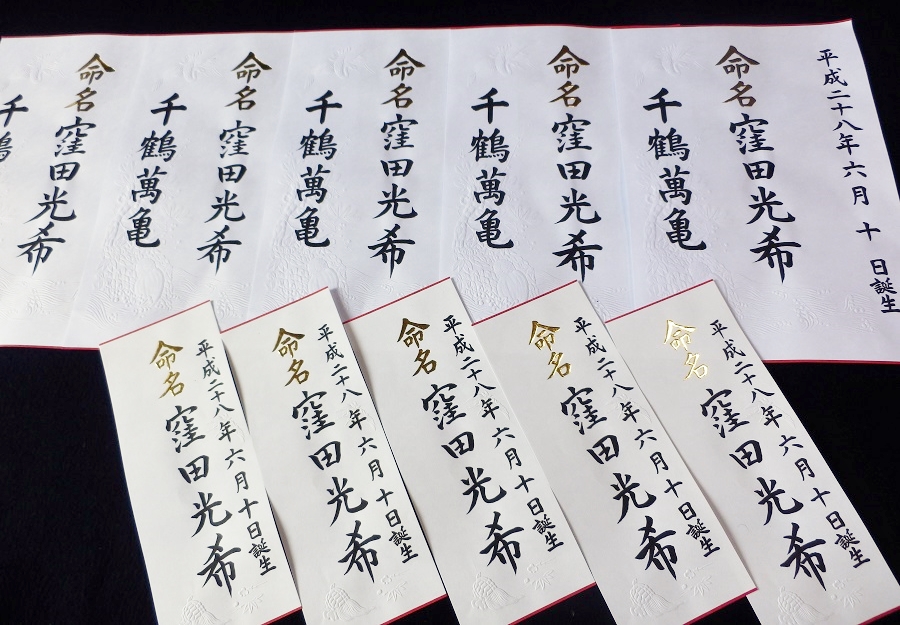 平成二十八年六月十日誕生
命名 窪田光希
千鶴萬亀
命名 窪田光希
千鶴萬亀
命名 窪田光希
千鶴萬亀
命名 窪田光希
千鶴萬亀
命名 窪田光希
千鶴
平成二十八年六月十日誕生
命名 窪田光希
平成二十八年六月十日誕生
命名 窪田光希
平成二十八年六月十日誕生
命名 窪田光希
平成二十八年六月十日誕生
命名 窪田光希
平成二十八年六月十日誕生
命名 窪田光希